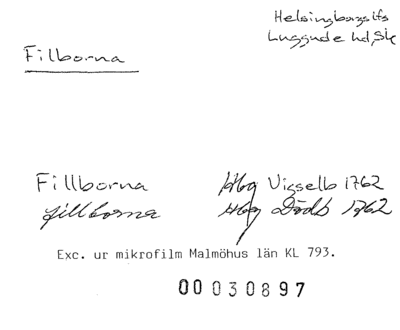 Helsingborgs lfs
Luggude hd, Sk
Filborna
Fillborna Hbg Vigselb 1762
Fillborna Hbg Dödb 1762
Exc. ur mikrofilm Malmöhus län KL 793.
00 030897